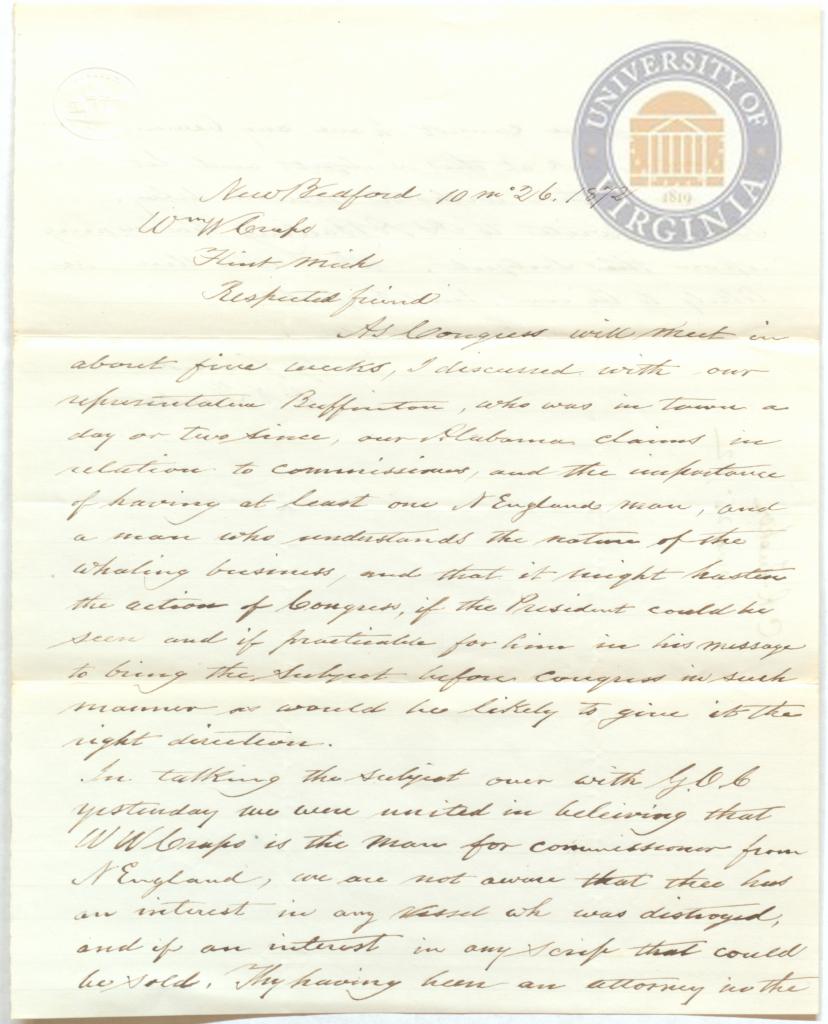 UNIVERSITY OF
VIRGINIA
1819
New Bedford 10 mo 26. 1872
Wm W Crapo
Flint Mich
Respected friend
As Congress will meet in
about five weeks, I discussed with our
representative Buffinton, who was in town a
day or two since, our Alabama claims in
relation to commissioners, and the importance
of having at least one N England man, and
a man who understands the nature of the
whaling business, and that it might hasten
the action of Congress, if the President could be
seen and if practicable for him in his message
to bring the subject before Congress in such
manner as would be likely to give it the
right direction.
In talking the subject over with G.O.C
yesterday we were united in believing that
W W Crapo is the man for commissioner from
N England, we are not aware that thee has
an interest in any vessel wh was distroyed,
and if an interest in any scrip that could
be sold. Thy having been an attorney in the